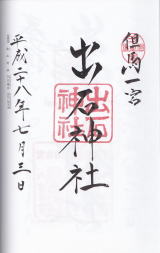 但馬一宮
出石神社
出石
神社
平成二十八年七月三日